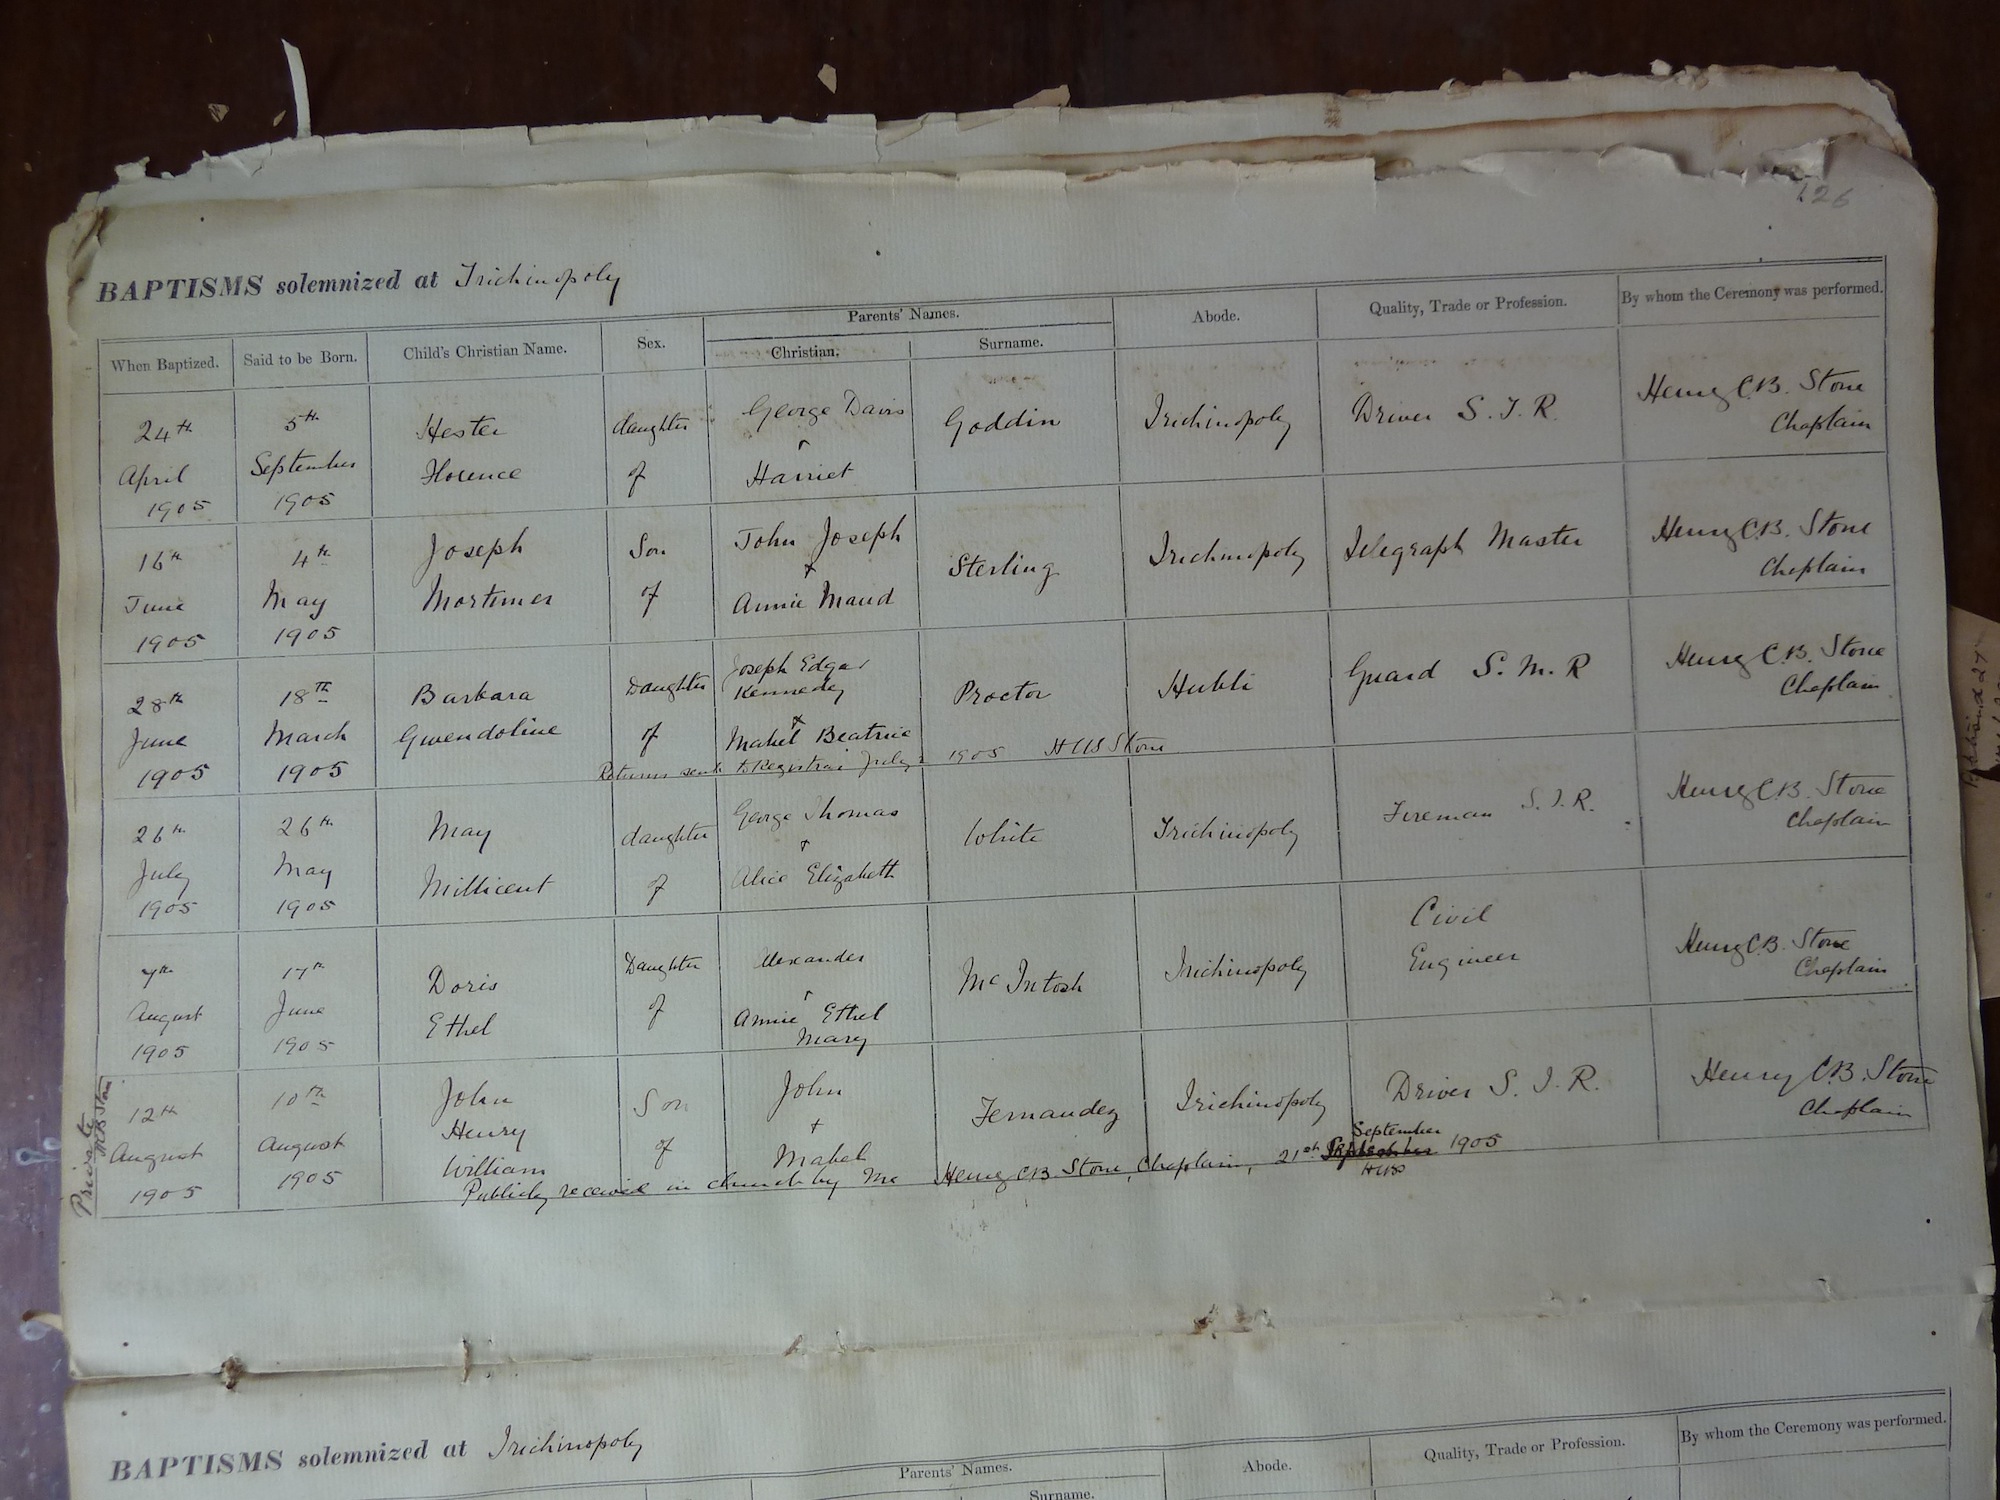 126
BAPTISMS solemnized at Trichinopoly
When Baptized.
Said to be Born.
Child's Christian Name.
Sex.
Parents' Names.
Christian.
Surname.
Abode.
Quality, Trade or Profession.
By whom the Ceremony was performed.
24th April 1905
5th September 1905
Hester Florence
daughter of
George Davis + Harriet
Goddin
Trichinopoly
Driver S. I. R.
Henry C.B. Stone Chaplain
16th June 1905
4th May 1905
Joseph Mortimer
Son of
John Joseph + Annie Maud
Sterling
Trichinopoly
Telegraph Master
Henry C.B. Stone Chaplain
28th June 1905
18th March 1905
Barbara Gwendoline
Daughter of
Joseph Edgar Kennedy + Mabel Beatrice
Proctor
Hubli
Guard S. M. R
Henry C.B. Stone Chaplain
Returns sent to Registrar July 1905 HCBStone
26th July 1905
26th May 1905
May Millicent
daughter of
George Thomas + Alice Elizabeth
White
Trichinopoly
Fireman S. I. R.
Henry C.B. Stone Chaplain
7th August 1905
17th June 1905
Doris Ethel
Daughter of
Alexander + Annie Ethel Mary
McIntosh
Trichinopoly
Civil Engineer
Henry C.B. Stone Chaplain
Private HCB Stone
12th August 1905
10th August 1905
John Henry William
Son of
John + Mabel
Fernandez
Trichinopoly
Driver S. I. R.
Henry C.B. Stone Chaplain
Publicly received in church by me Henry C.B. Stone, Chaplain, 21st September 1905
HCBS
BAPTISMS solemnized at Trichinopoly
Parents' Names.
Surname.
Abode.
Quality, Trade or Profession.
By whom the Ceremony was performed.